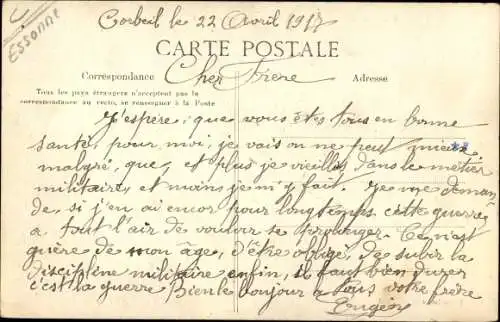 Essonne
Corbeil le 22 Avril 1917
CARTE POSTALE
Correspondance
Cher Frère
Adresse
Tous les pays étrangers n'acceptent pas la
correspondance au recto, se renseigner à la Poste
J'espère, que vous êtes tous en bonne
santé, pour moi, je vais on ne peut mieux
malgré, que, et plus je vieillis dans le métier
militaire, et moins je m'y fait. Je me deman-
de, si j'en ai encor pour longtemps, cette guerre
a tout l'air de vouloir se prolonger. Ce n'est
guère de mon âge, d'être obligé, de subir la
discipline militaire enfin, il faut bien durer
c'est la guerre Bien le bonjour a tous votre frère
Eugène